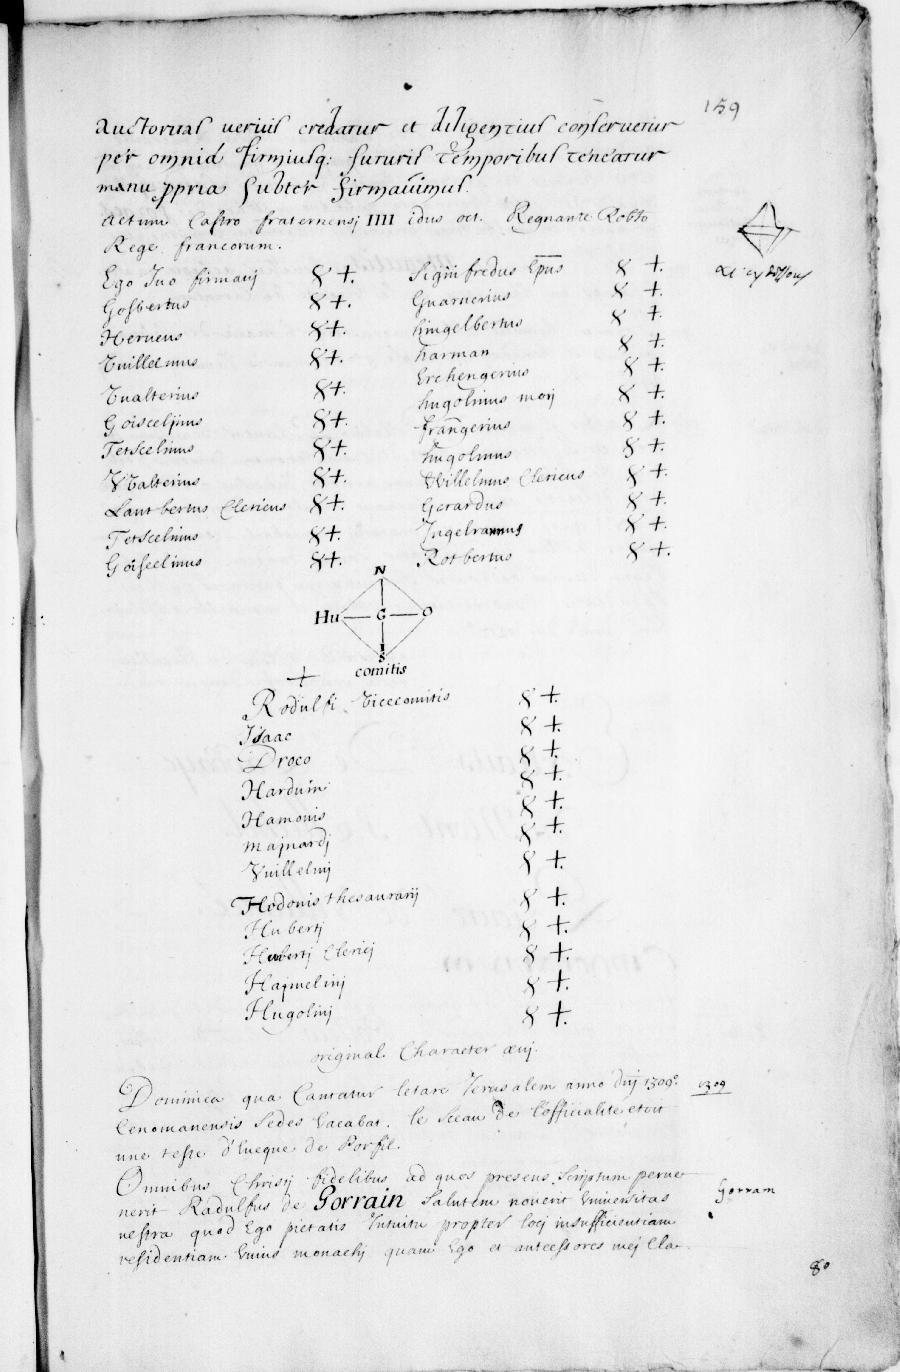 159
auctoritas uerius credatur et diligentius conseruetur
per omnia firmiusq: futuris temporibus teneatur
manu ppria subter firmauimus.
actum Castro fraternensj IIII idus oct. Regnante Robto
Rege francorum.
Ego Iuo firmauj 8 +. Siginfredus Epus 8 +.
Gosbertus 8 +. Guarnerius 8 +.
Herueus 8 +. hingelbertus 8 +.
Vuillelmus 8 +. harman 8 +.
Vualterius 8 +. Erchengerius 8 +.
Goiscelinus 8 +. hugolinus 8 +.
Tetscelinus 8 +. frangerius 8 +.
VValterius 8 +. hugolinus 8 +.
Lantbertus Clericus 8 +. VVillelmus Clericus 8 +.
Tetscelinus 8 +. Gerardus 8 +.
Goiscelinus 8 +. Ingelrannus 8 +.
Rotbertus 8 +.
N
Hu G O
I
S
+ comitis
Rodulfi Vicecomitis 8 +.
Isaac 8 +.
Droco 8 +.
Harduin 8 +.
Hamonis 8 +.
Majnardj 8 +.
Vuillelmj 8 +.
Hodonis thesaurarij 8 +.
Hubertj 8 +.
Hubertj Clericj 8 +.
Hajmelinj 8 +.
Hugolinj 8 +.
original. Character æuj.
Dominica qua Cantatur letare Jerusalem anno dnj 1309º. 1309
Cenomanensis Sedes Vacabat. le Sceau de l'officialité étoit
une teste d'Eueque de Porfil.
Omnibus Christj fidelibus ad quos presens Scriptum perue
nerit Radulfus de Gorrain Salutem nouerit Vniuersitas Gorram
uestra quod Ego pietatis Intuitu propter locj insufficientiam
residentiam Vnius monachj quam Ego et antecessores mej Cla
80